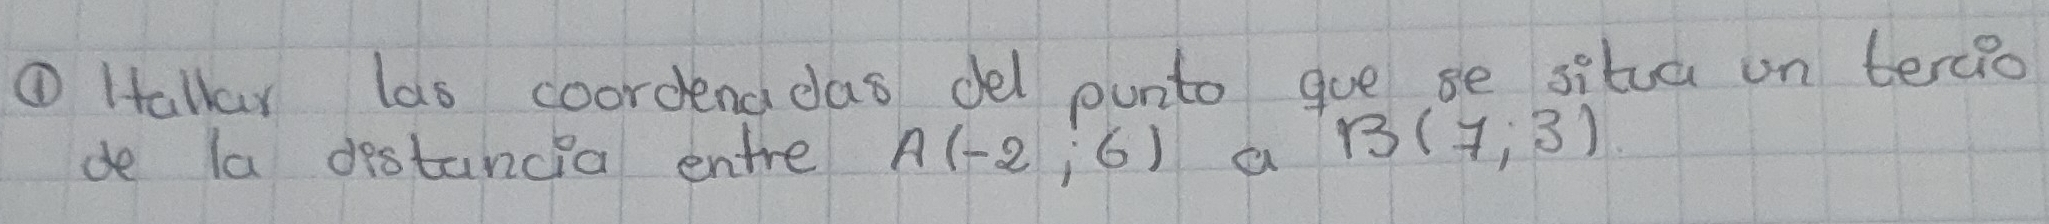 ① Hallar las coordenadas del punto que se situa un tercio
de la distancia entre A(-2;6) a B(7;3).